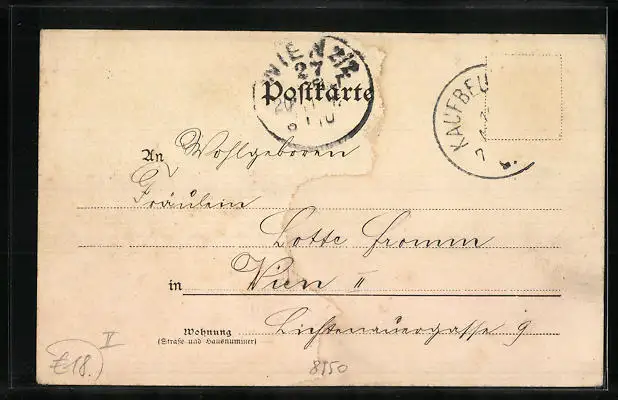 WIEN 2/2
27
Postkarte
KAUFBEU
An Wohlgeboren
Fräulein
Lotte Fromm
in Wien II
Wohnung Lichtenauergasse 9
(Straße und Hausnummer)
£18.
V
8150